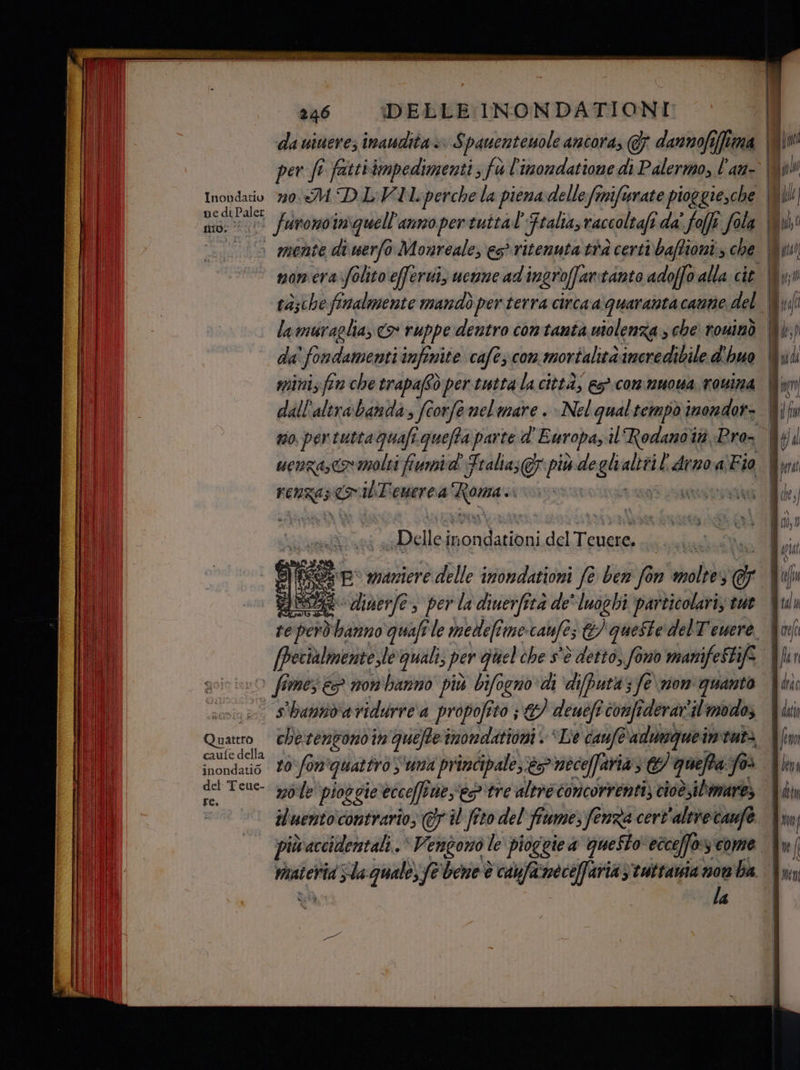 246 DELLE INONDATIONI
da viuere, inaudita. Spauenteuole ancora, & dannosissima
per sì fatti impedimenti, fù l'inondatione di Palermo, l'an-
Inondatio
ne di Paler
mo.
no MDLVII. perche la piena delle smisurate pioggie, che
furono in quell'anno per tutta l'Italia, raccoltasi da' fossi sola
mente di verso Monreale, & ritenuta trà certi bastioni, che
non era solito esserui, uenne ad ingrossar tanto adosso alla cit
tà, che finalmente mandò per terra circa a quaranta canne del
la muraglia, & ruppe dentro con tanta uiolenza, che rouinò
da' fondamenti infinite case, con mortalità incredibile d'huo
mini, fin che trapassò per tutta la città, & con nuoua rouina
dall'altra banda, scorse nel mare. Nel qual tempo inondor-
no per tutta quasi questa parte d'Europa, il Rodano in Pro-
uenza, & molti fiumi d'Italia; & più de gli altri l'Arno a Fio
renza, & il Teuere a Roma.
Delle inondationi del Teuere.
SE maniere delle inondationi se ben son molte, &
diuerse, per la diuersità de' luoghi particolari, tut
te però hanno quasi le medesime cause; & queste del Teuere
specialmente, le quali, per quel che s'è detto, sono manifestis-
sime, & non hanno più bisogno di disputa; se non quanto
s'hanno a ridurre a proposito; & deuesi considerar'il modo,
Quattro
cause della
inondatiō
del Teue-
re.
che tengono in queste inondationi. Le cause adunque in tut-
to son quattro, una principale, & necessaria, & questa so-
no le pioggie eccessiue, & tre altre concorrenti, cioè, il mare,
il uento contrario, & il sito del fiume, senza cert'altre cause
più accidentali. Vengono le pioggie a questo eccesso, come
materia, la quale, se bene è causa necessaria, tuttauia non ha
la